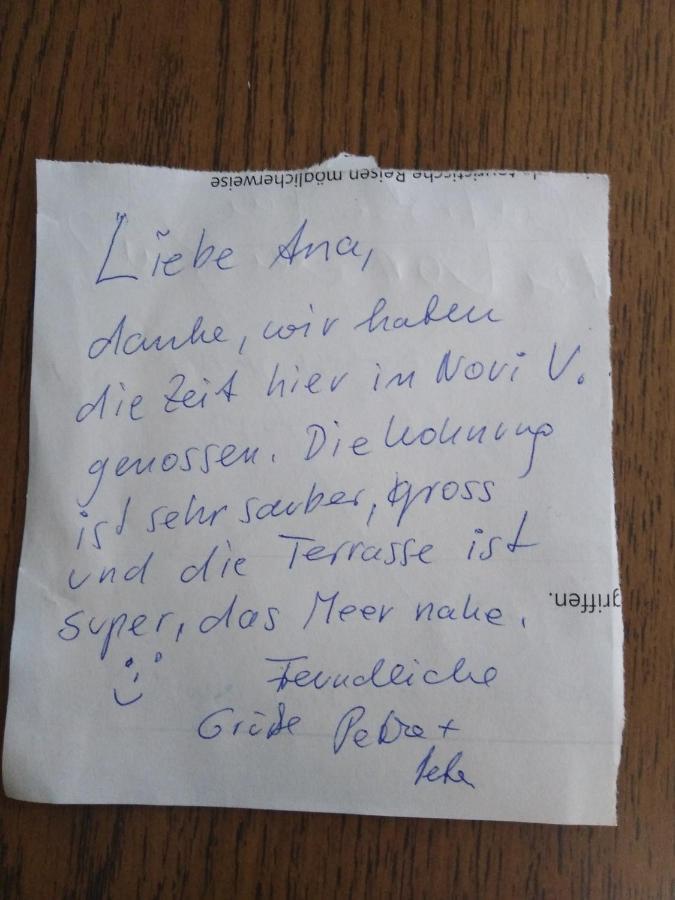 touristische Reisen möglicherweise
Liebe Ana,
danke, wir haben
die Zeit hier in Novi V.
genossen. Die Wohnung
ist sehr sauber, gross
und die Terrasse ist
super, das Meer nahe.
griffen.
Freundliche
Grüße Petra +